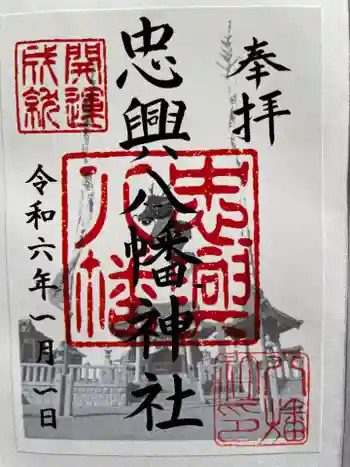 奉拝
忠興八幡神社
令和六年一月一日
開運成就
忠興八幡
八幡社印